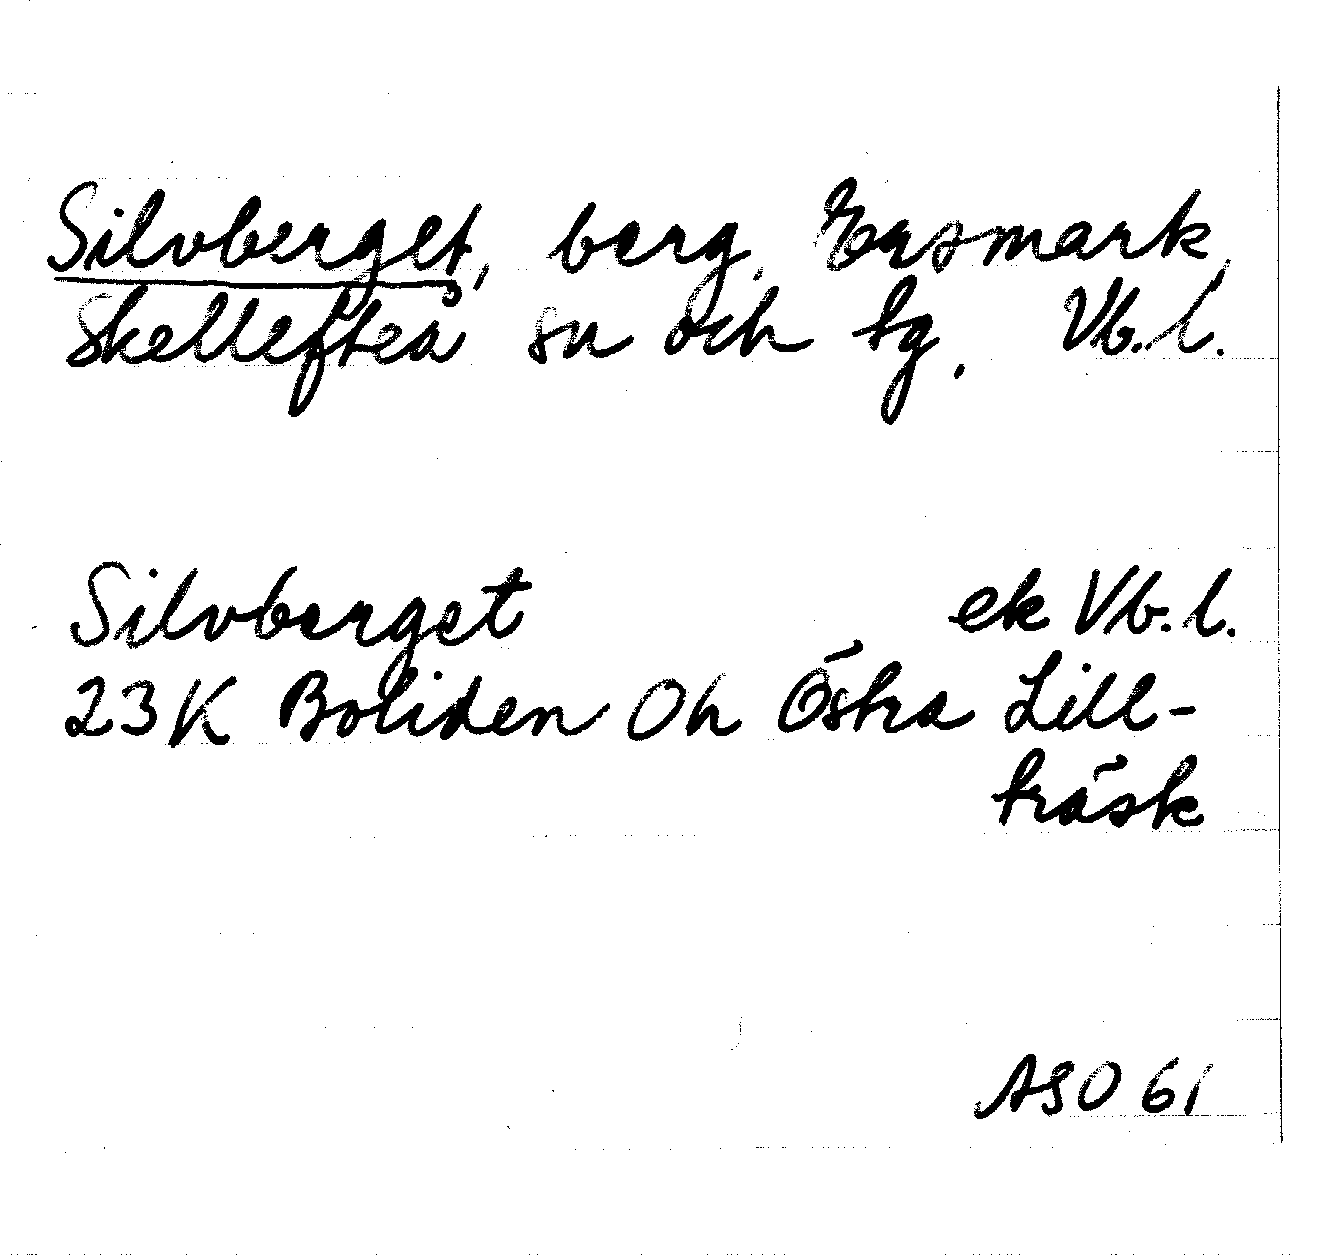 Silvberget, berg, Ersmark,
Skellefteå sn och tg. Vb.l.
Silvberget ek Vb.l.
23K Boliden 0h Östra Lill-
träsk
ASO 61